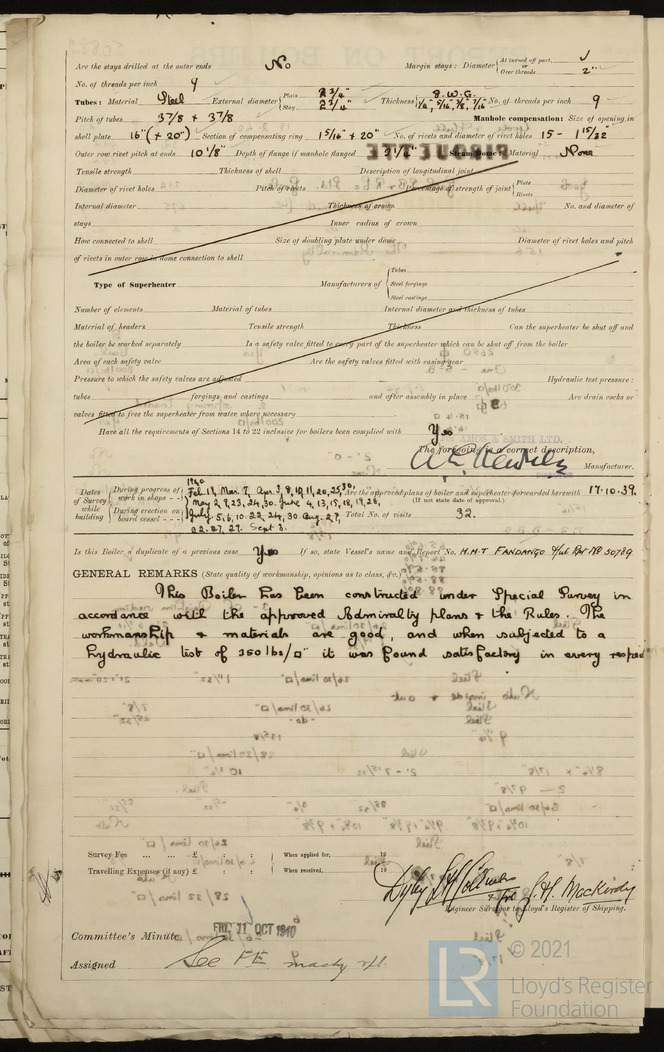 Are the stays drilled at the outer ends No Margin stays: Diameter { At turned off part, or Over threads 2"
No. of threads per inch 9
Tubes: Material Steel External diameter { Plain 2 3/4" Stay 2 3/4" Thickness { 8 W.G. 1/4, 5/16, 3/8, 7/16 No. of threads per inch 9
Pitch of tubes 3 7/8 + 3 7/8 Manhole compensation: Size of opening in
shell plate 16" (+ 20") Section of compensating ring 1 5/16" + 20" No. of rivets and diameter of rivet holes 15 - 1 15/32"
Outer row rivet pitch at ends 10 1/8" Depth of flange if manhole flanged 3 1/8" Steam Dome: Material None
Tensile strength Thickness of shell Description of longitudinal joint
Diameter of rivet holes Pitch of rivets Percentage of strength of joint { Plate Rivets
Internal diameter Thickness of crown No. and diameter of
stays Inner radius of crown
How connected to shell Size of doubling plate under dome Diameter of rivet holes and pitch
of rivets in outer row in dome connection to shell
Type of Superheater Manufacturers of { Tubes Steel forgings Steel castings
Number of elements Material of tubes Internal diameter and thickness of tubes
Material of headers Tensile strength Thickness Can the superheater be shut off and
the boiler be worked separately Is a safety valve fitted to every part of the superheater which can be shut off from the boiler
Area of each safety valve Are the safety valves fitted with easing gear
Pressure to which the safety valves are adjusted Hydraulic test pressure:
tubes forgings and castings and after assembly in place Are drain cocks or
valves fitted to free the superheater from water where necessary
Have all the requirements of Sections 14 to 22 inclusive for boilers been complied with Yes
SMITH LTD.
The foregoing is a correct description,
Manufacturer.
Dates of Survey while building
During progress of work in shops - - 1940 Feb 19, Mar. 7, Apr. 3, 8, 10, 11, 20, 25, 30, May 2, 9, 23, 24, 30. June 4, 13, 15, 18, 19, 26,
Are the approved plans of boiler and superheater forwarded herewith 17.10.39.
(If not state date of approval.)
During erection on board vessel - - - July 5, 6, 10, 22, 24, 30. Aug. 2, 9, 22, 27, 29. Sept 3. Total No. of visits 32.
Is this Boiler a duplicate of a previous case Yes If so, state Vessel's name and Report No. H.M.T FANDANGO Hull Rpt No 50789
GENERAL REMARKS (State quality of workmanship, opinions as to class, &c.)
This Boiler has been constructed under Special Survey in
accordance with the approved Admiralty plans & the Rules. The
workmanship & materials are good, and when subjected to a
hydraulic test of 350 lbs/□" it was found satisfactory in every respect
Survey Fee ... ... £ : : When applied for, 19
Travelling Expenses (if any) £ : : When received, 19
for J. H. Mackirdy
Engineer Surveyor to Lloyd's Register of Shipping.
Committee's Minute FRI. 11 OCT 1940
Assigned See F.E. machy rpt
© 2021
Lloyd's Register
Foundation